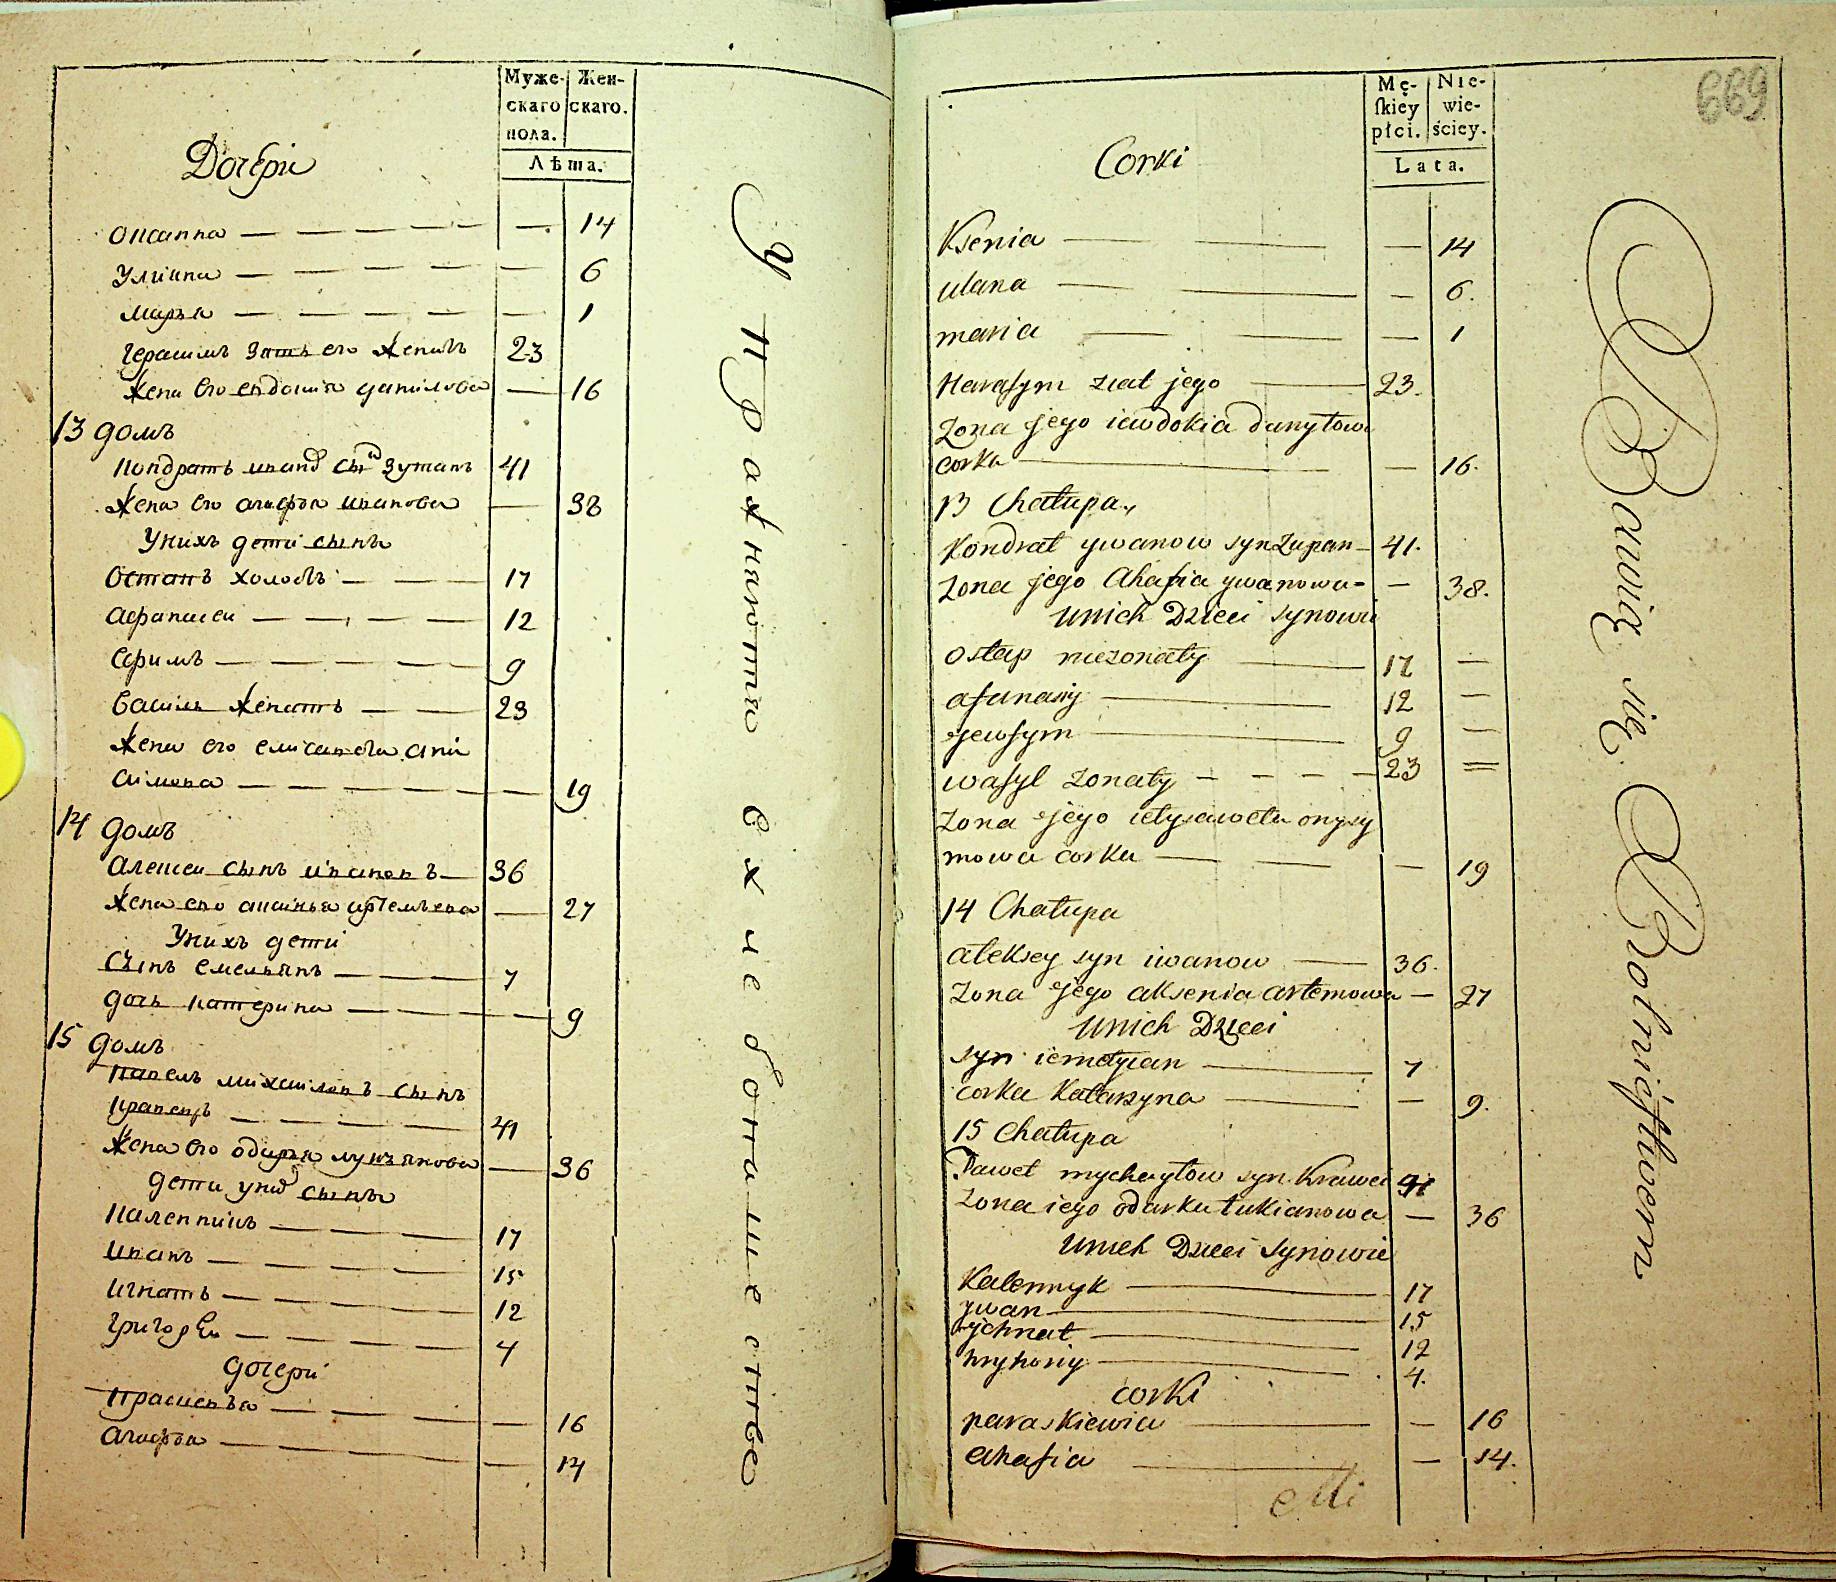 Муже-
скаго
пола.
Жен-
скаго.
Лѣта.
Дочери
Оксанна — — — — — — 14
Улияна — — — — — 6
Марья — — — — — — 1
Герасимъ зять его женатъ 23
Жена его евдокия данилова — 16
13 домъ
Кондратъ иванов сын зупанъ 41
Жена его агафья иванова — 38
У нихъ дети сынъı
Остапъ холостъ — — — 17
Афанасеи — — — — 12
Ефимъ — — — — — 9
Василь женатъ — — — 23
Жена его елисавета они
симова — — — — — — — 19
14 домъ
Алексеи сынъ ивановъ — 36
Жена его аксинья артемьева — 27
У нихъ дети
Сынъ емельянъ — — — — 7
дочь катерина — — — — — — 9
15 домъ
Павелъ михаиловъ сынъ
кравецъ — — — — — 41
Жена его одарья лукьянова — 36
дети у них сынъı
Каленникъ — — — — — 17
Иванъ — — — — — — 15
Игнатъ — — — — — 12
Григореи — — — — 4
дочери
Прасковья — — — — — — 16
Агафья — — — — — 14
У пражняются в хлебопашестве
Mę-
ſkiey
płci.
Nie-
wie-
ściey.
Lata.
669
Corki
Ksenia — — — 14
ulana — — — 6.
maria — — — 1
Harasym ziat jego — 23.
zona jego iewdokia danyłowa
corka — — 16.
13 Chałupa
Kondrat ywanow syn zupan — 41.
zona jego Ahafia ywanowa — 38.
unich Dzieci synowie
ostap niezonaty — 17 —
afanasiy — 12 —
jewfym — 9 —
wasyl zonaty — — — — 23 =
zona jego iełysaweta onysy
mowa corka — — — 19
14 Chałupa
aleksey syn iwanow — 36.
zona jego aksenia artemowa — 27
unich Dzieci
syn iemelyian — 7
corka Katarzyna — — 9.
15 Chałupa
Paweł mychayłow syn Krawec 41
zona iego odarka łukianowa — 36
unich Dzieci synowie
Kalennyk — 17
ywan — 15
yhnat — 12
hryhoriy — 4.
corki
paraskiewia — — 16
ahafia — — 14.
Bawią się Rolnictwem